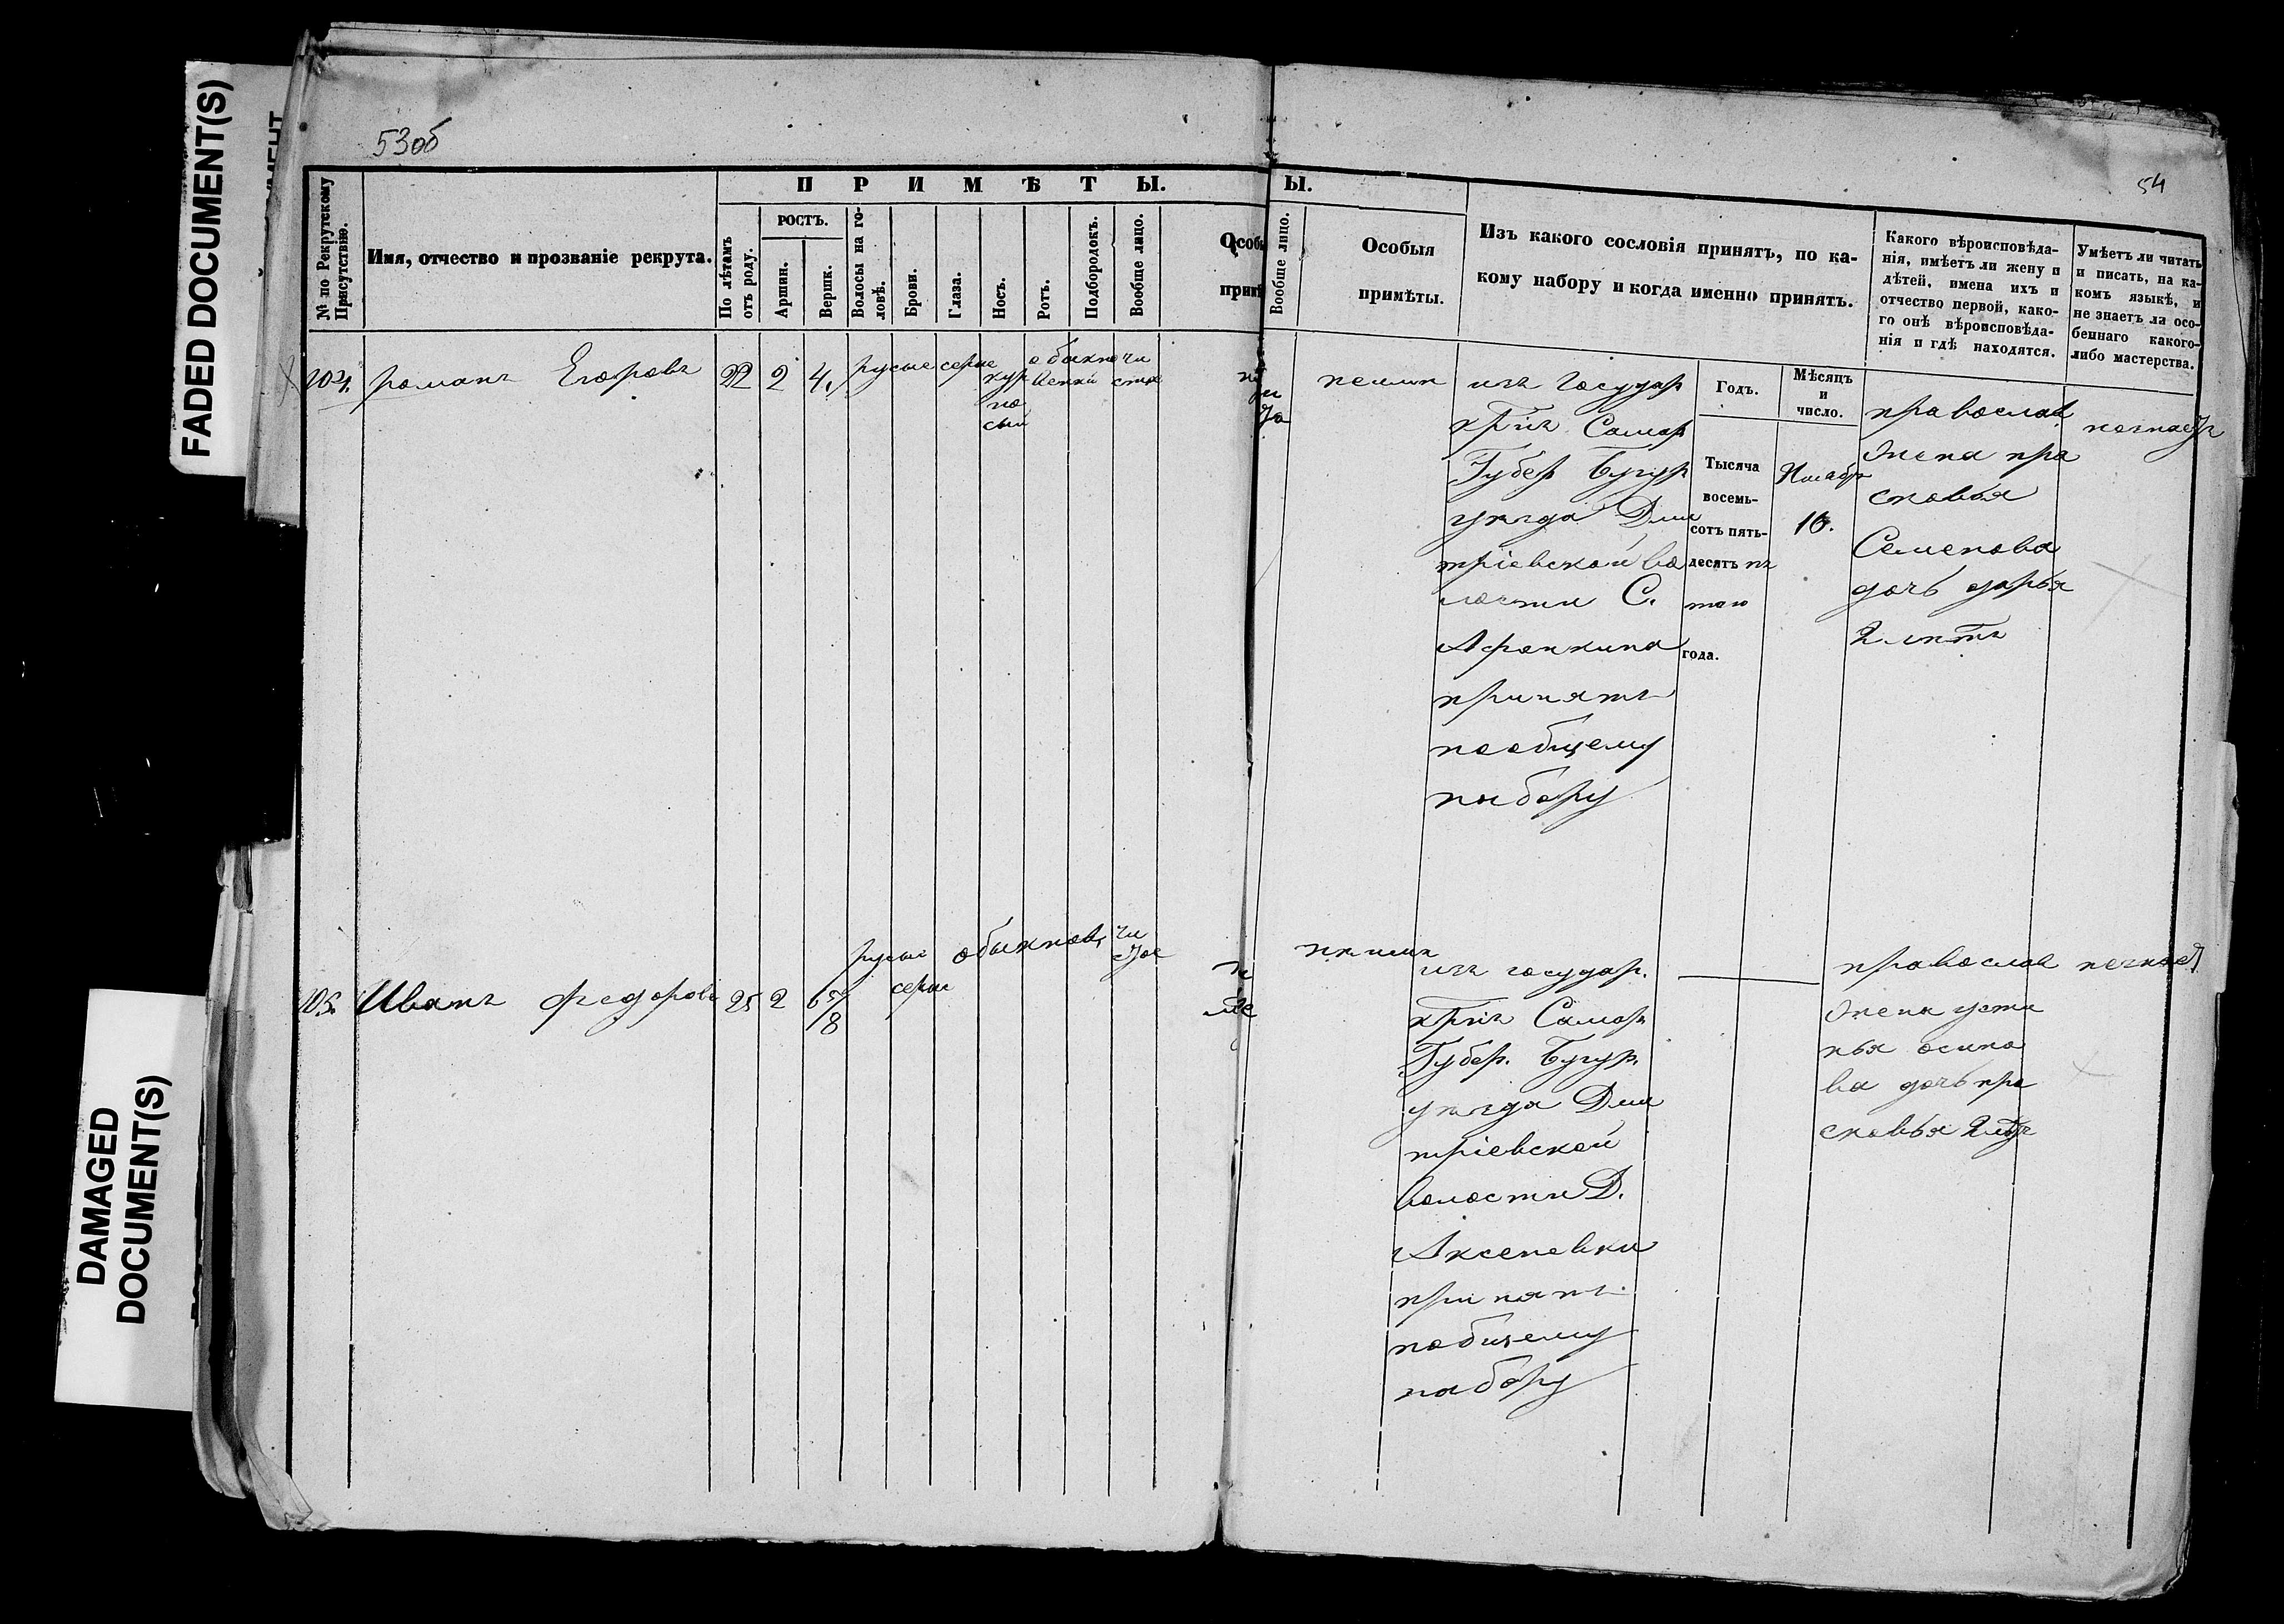 FADED DOCUMENT(S)
DAMAGED
DOCUMENT(S)
53об
54
№ по Рекрутскому
Присутствію.
Имя, отчество и прозваніе рекрута.
ПРИМѢТЫ.
По лѣтамъ
отъ роду.
РОСТЪ.
Аршин.
Вершк.
Волосы на го-
ловѣ.
Брови.
Глаза.
Носъ.
Ротъ.
Подбородокъ.
Вообще лицо.
Особы
примѣ
Ы.
Вообще лицо.
Особыя
примѣты.
Изъ какого сословія принятъ, по ка-
кому набору и когда именно принятъ.
Какого вѣроисповѣда-
нія, имѣетъ ли жену и
дѣтей, имена ихъ и
отчество первой, како-
го онѣ вѣроисповѣда-
нія и гдѣ находятся.
Умѣетъ ли читать
и писать, на ка-
комъ языкѣ, и
не знаетъ ли осо-
беннаго какого-
либо мастерства.
104. романъ Егоровъ 22 2 4, русые серые
кур
но
сый
обыкно
венный
чи
стое
неимѣ
изъ Государ
кртiнъ Самар
Губер Бугур
уѣзда Дми
тріевской во
лости С.
Афонкина
принятъ
пообщему
набору
Годъ.
Мѣсяцъ
и
число.
Тысяча
восемь-
сотъ пять-
десятъ пя
таго
года.
Ноабр
16.
православ
жена пра
сковья
Семенова
дочь дарья
2 лѣтъ
незнаетъ
105. Иванъ федоровъ 25 2 6 5/8
русые
серые
обыкнов,
чи
стое
неимѣ
изъ государ.
кртiнъ Самар
Губер. Бугур.
уѣзда Дми
тріевской
волости Д.
Аксеневки
принятъ
пообщему
набору
православ
жена усти
нья осипо
ва дочь пра
сковья 2 лѣтъ
незнает